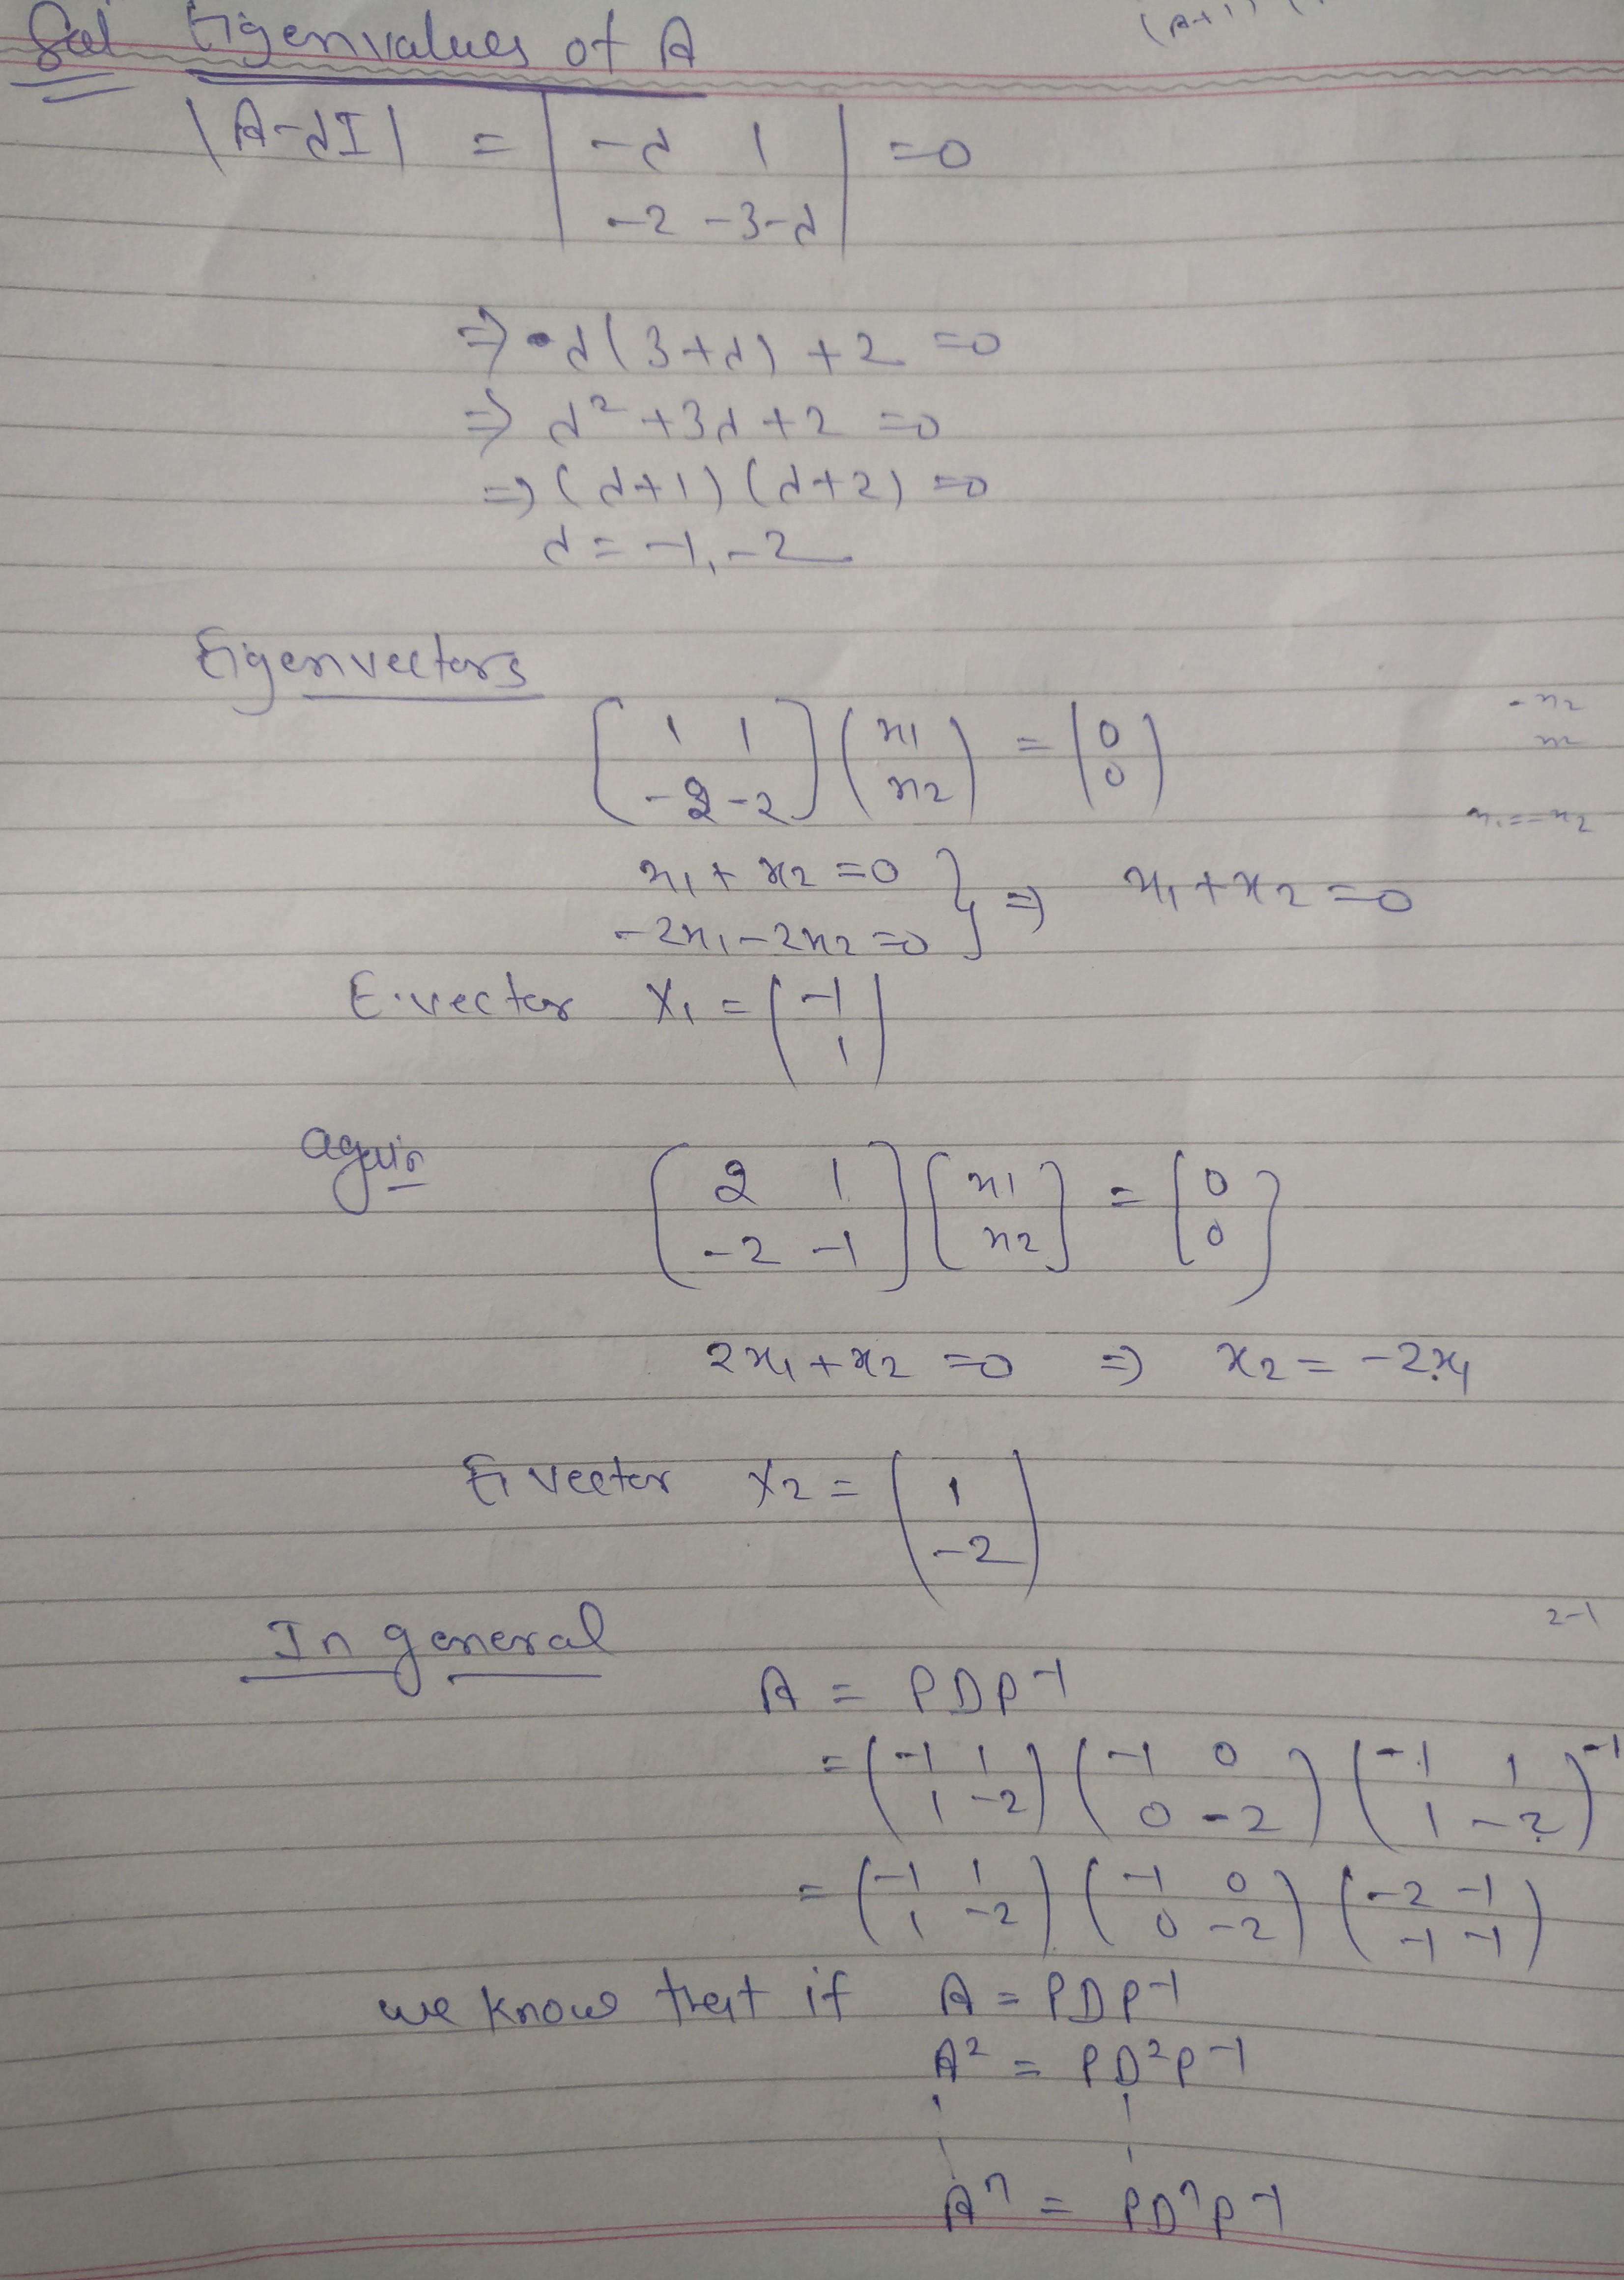 Sol Eigenvalues of A
|A-λI| = | -λ 1 | =0
| -2 -3-λ |
⇒ λ(3+λ) +2 =0
⇒ λ² +3λ +2 =0
⇒ (λ+1) (λ+2) =0
λ = -1, -2
Eigenvectors
[ 1 1 ] ( x1 ) = ( 0 )
[ -2 -2 ] ( x2 ) ( 0 )
x1 + x2 =0 } ⇒ x1 + x2 =0
-2x1 - 2x2 =0
E.vector X1 = ( -1 )
( 1 )
again
[ 2 1 ] [ x1 ] = [ 0 ]
[ -2 -1 ] [ x2 ] [ 0 ]
2x1 + x2 =0 ⇒ x2 = -2x1
E.vector X2 = ( 1 )
( -2 )
2-1
In general
A = PDP-1
= ( -1 1 ) ( -1 0 ) ( -1 1 )-1
( 1 -2 ) ( 0 -2 ) ( 1 -2 )
= ( -1 1 ) ( -1 0 ) ( -2 -1 )
( 1 -2 ) ( 0 -2 ) ( -1 -1 )
we know that if A = PDP-1
A² = PD²P-1
Aⁿ = PDⁿP-1